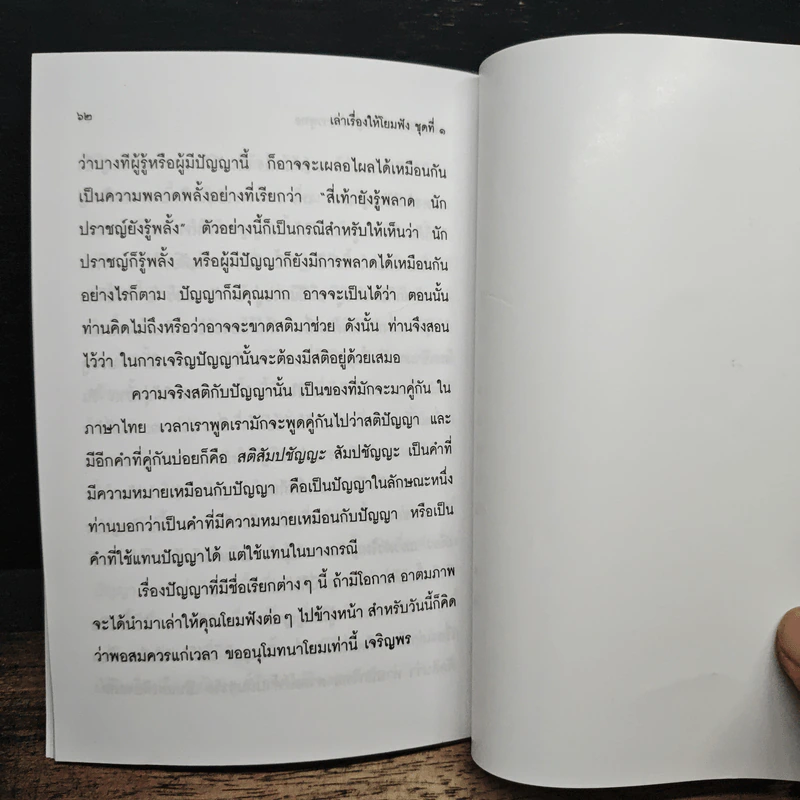 ๖๒ เล่าเรื่องให้โยมฟัง ชุดที่ ๑
ว่าบางทีผู้รู้หรือผู้มีปัญญานี้ ก็อาจจะเผลอไผลได้เหมือนกัน
เป็นความพลาดพลั้งอย่างที่เรียกว่า “สี่เท้ายังรู้พลาด นัก
ปราชญ์ยังรู้พลั้ง” ตัวอย่างนี้ก็เป็นกรณีสำหรับให้เห็นว่า นัก
ปราชญ์ก็รู้พลั้ง หรือผู้มีปัญญาก็ยังมีการพลาดได้เหมือนกัน
อย่างไรก็ตาม ปัญญาก็มีคุณมาก อาจจะเป็นได้ว่า ตอนนั้น
ท่านคิดไม่ถึงหรือว่าอาจจะขาดสติมาช่วย ดังนั้น ท่านจึงสอน
ไว้ว่า ในการเจริญปัญญานั้นจะต้องมีสติอยู่ด้วยเสมอ
ความจริงสติกับปัญญานั้น เป็นของที่มักจะมาคู่กัน ใน
ภาษาไทย เวลาเราพูดเรามักจะพูดคู่กันไปว่าสติปัญญา และ
มีอีกคำที่คู่กันบ่อยก็คือ สติสัมปชัญญะ สัมปชัญญะ เป็นคำที่
มีความหมายเหมือนกับปัญญา คือเป็นปัญญาในลักษณะหนึ่ง
ท่านบอกว่าเป็นคำที่มีความหมายเหมือนกับปัญญา หรือเป็น
คำที่ใช้แทนปัญญาได้ แต่ใช้แทนในบางกรณี
เรื่องปัญญาที่มีชื่อเรียกต่างๆ นี้ ถ้ามีโอกาส อาตมภาพ
จะได้นำมาเล่าให้คุณโยมฟังต่อๆ ไปข้างหน้า สำหรับวันนี้ก็คิด
ว่าพอสมควรแก่เวลา ขออนุโมทนาโยมเท่านี้ เจริญพร